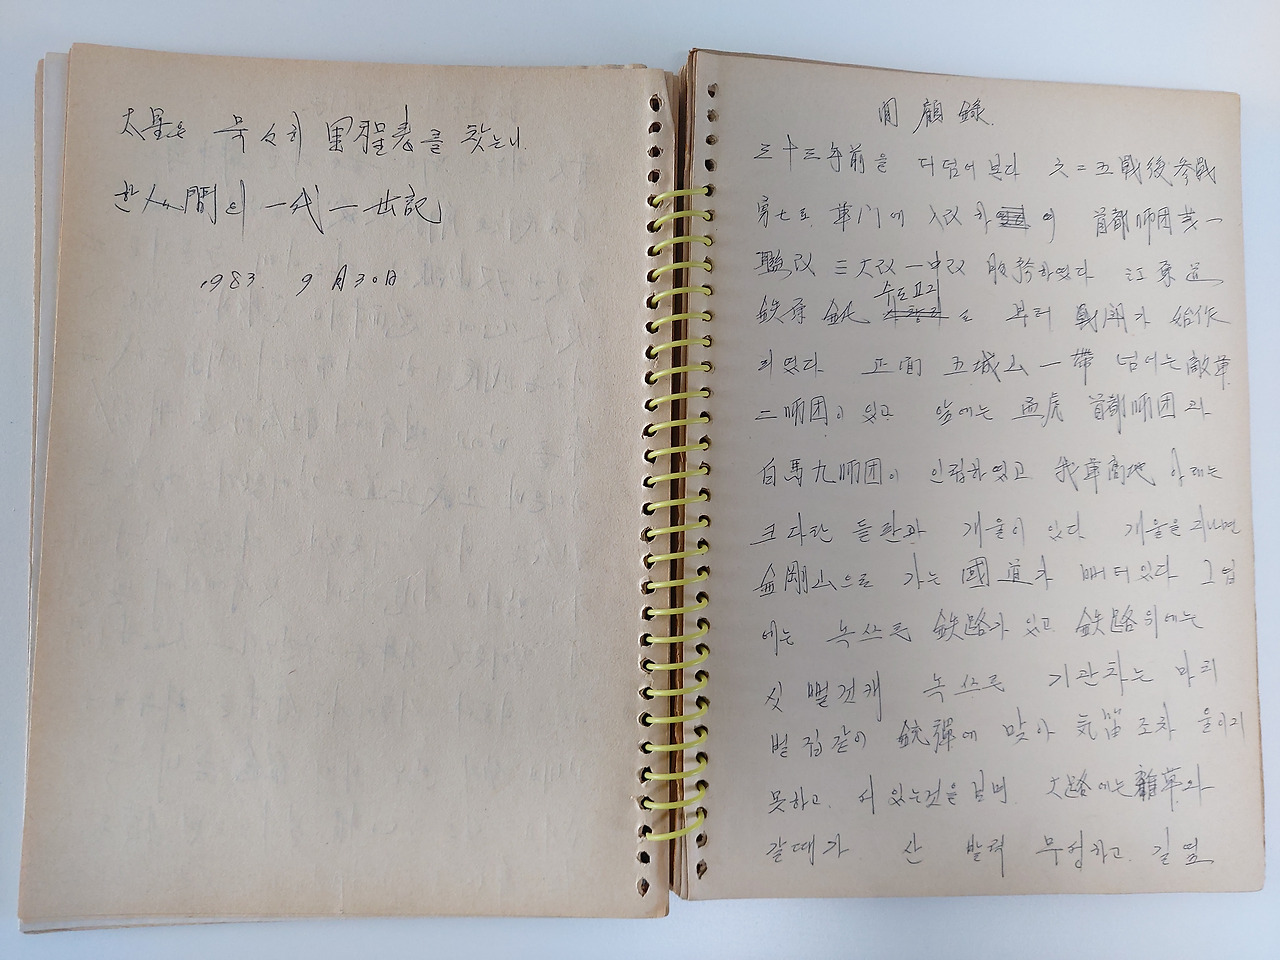 太星은 묵々히 里程表를 찾느니
한 人間의 一代一世記
1983. 9月30日
回顧錄.
三十三年前을 더덤어 본다 六二五戰後参戦
軍門에 入以 하여 首都師团
三大以一中以 하였다 江原道
鉄原 수도고지로 부터 戰闘가 始作
되였다 正面 五城山 一帶 넘어는 敵軍
二師团이 있고 앞에는 猛虎 首都師团과
白馬九師团이 인접하였고 我軍高地 아래는
크다란 들판과 개울이 있다 개울을 지나면
金剛山으로 가는 國道가 빼더있다 그엽
에는 녹쓰른 鉄路가 있고 鉄路위에는
싯뻘건캐 녹쓰른 기관차는 마치
벌집같이 銃彈에 맞아 気笛조차 울이지
못하고. 서 있는것을 보며 大路에는 雜草와
갈때가 산발적 무성하고. 길옆